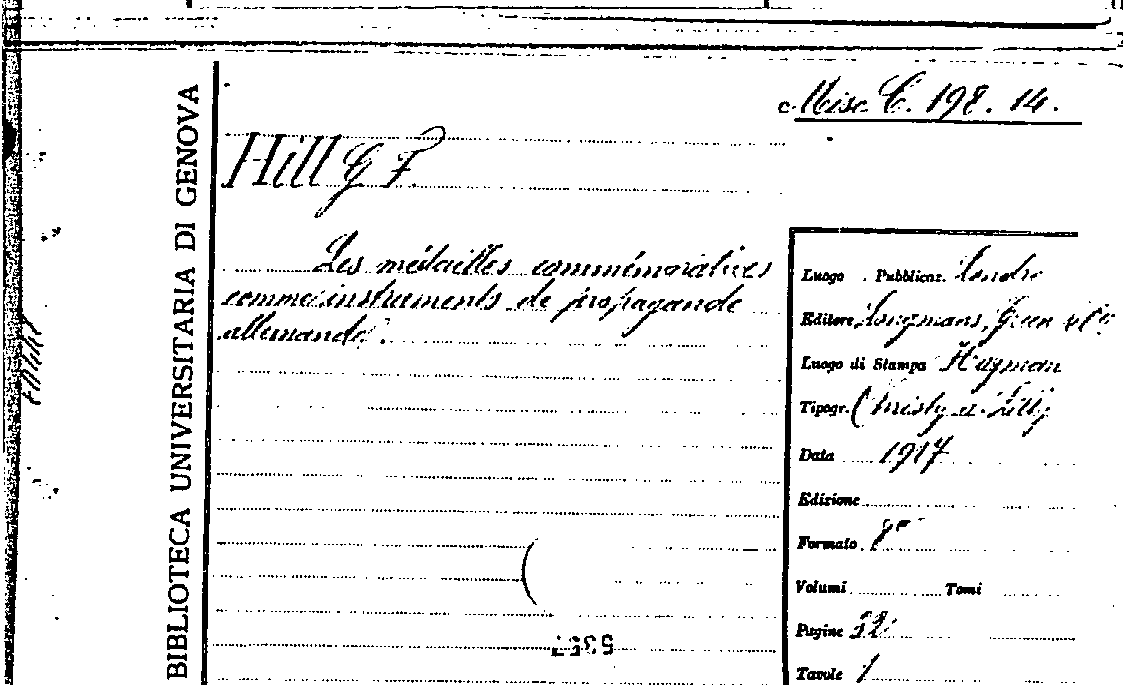 Misc. C. 198. 14.
BIBLIOTECA UNIVERSITARIA DI GENOVA
Hill G F.
Les médailles commémoratives
comme instruments de propagande
allemande.
Luogo Pubblicaz. Londre
Editore Longmans, Green & Co
Luogo di Stampa
Tipogr. Christy & Lilly
Data 1917
Edizione
Formato 8°
Volumi Tomi
Pagine 32
Tavole 1